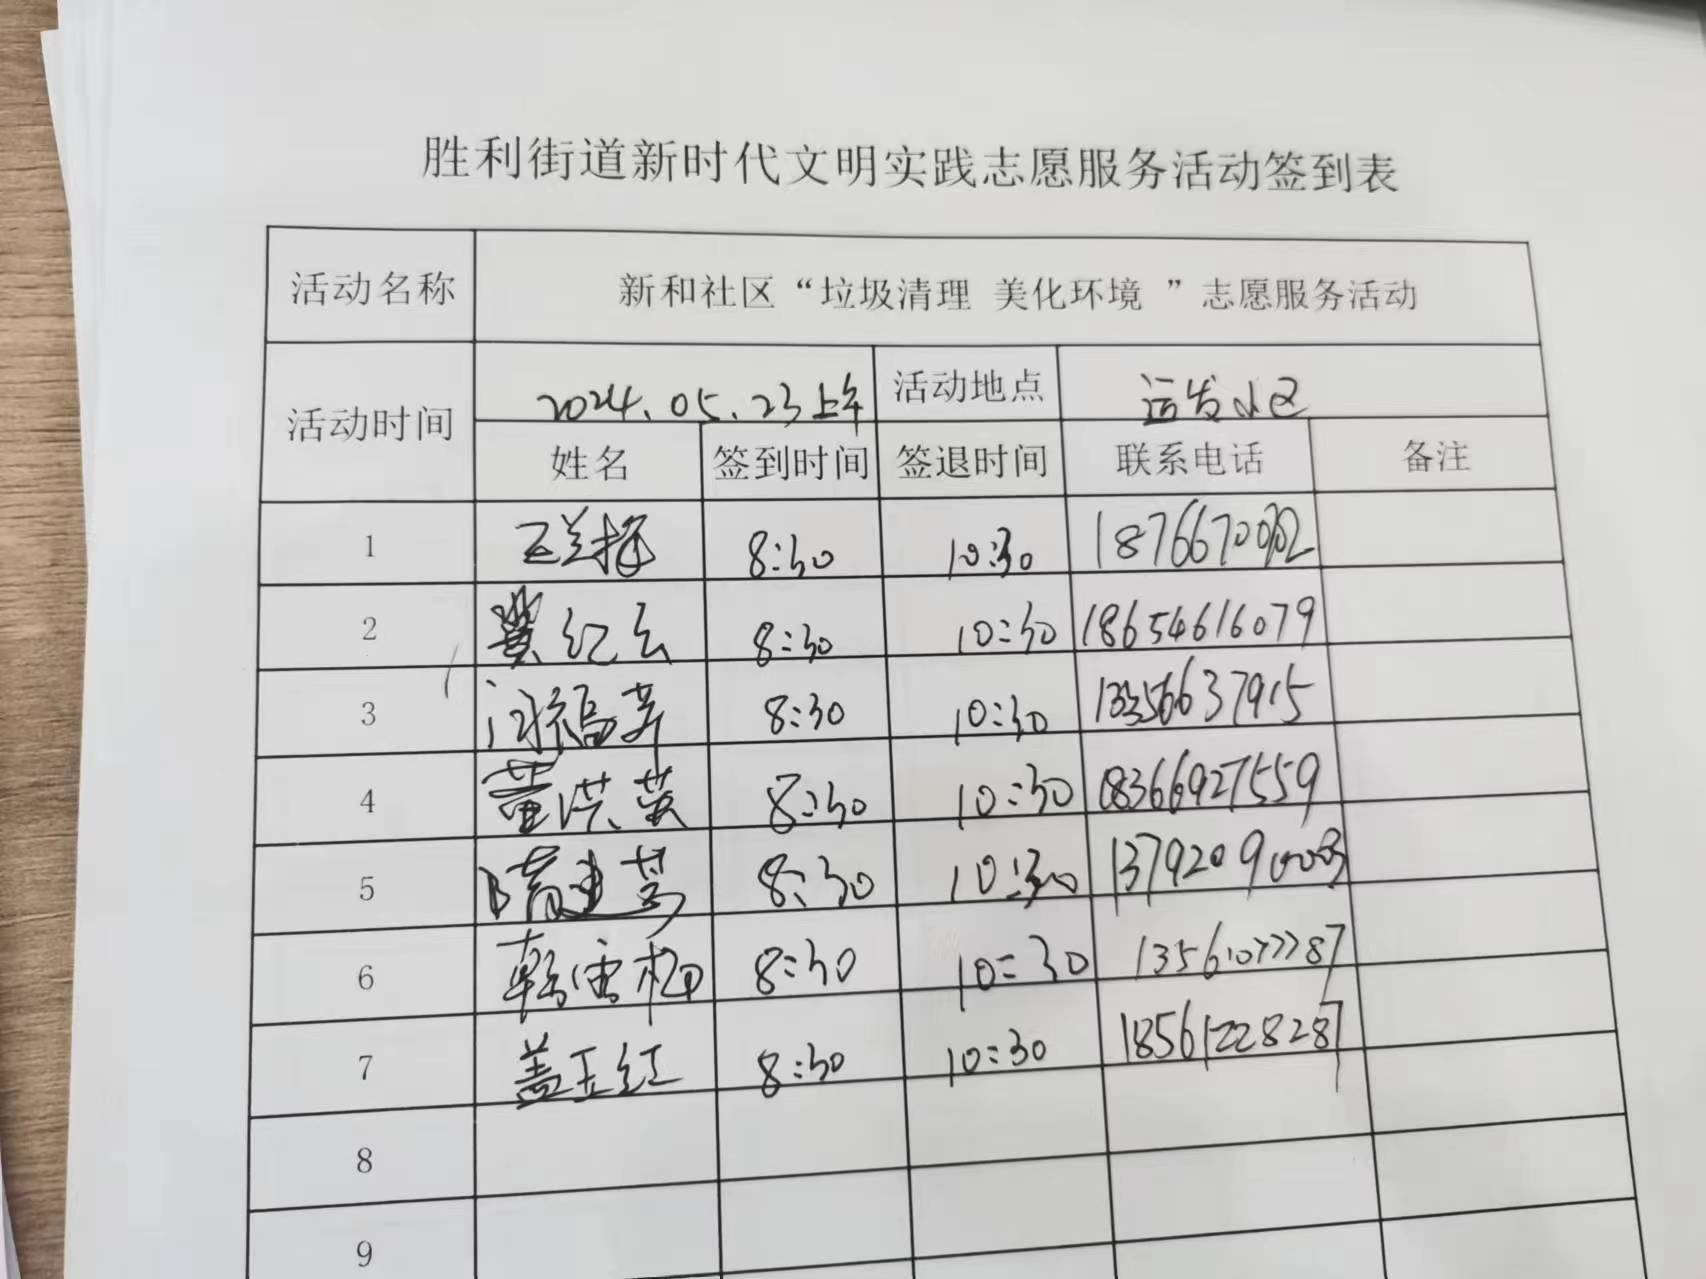 胜利街道新时代文明实践志愿服务活动签到表
活动名称 新和社区“垃圾清理 美化环境 ”志愿服务活动
活动时间 2024.05.23上午 活动地点 运发小区
姓名 签到时间 签退时间 联系电话 备注
1 8:30 10:30
2 冀红云 8:30 10:30 18654616079
3 8:30 10:30 13356637915
4 董洪英 8:30 10:30 18366927559
5 隋建芳 8:30 10:30
6 韩雷梅 8:30 10:30 13561077787
7 盖玉红 8:30 10:30 18561228287
8
9